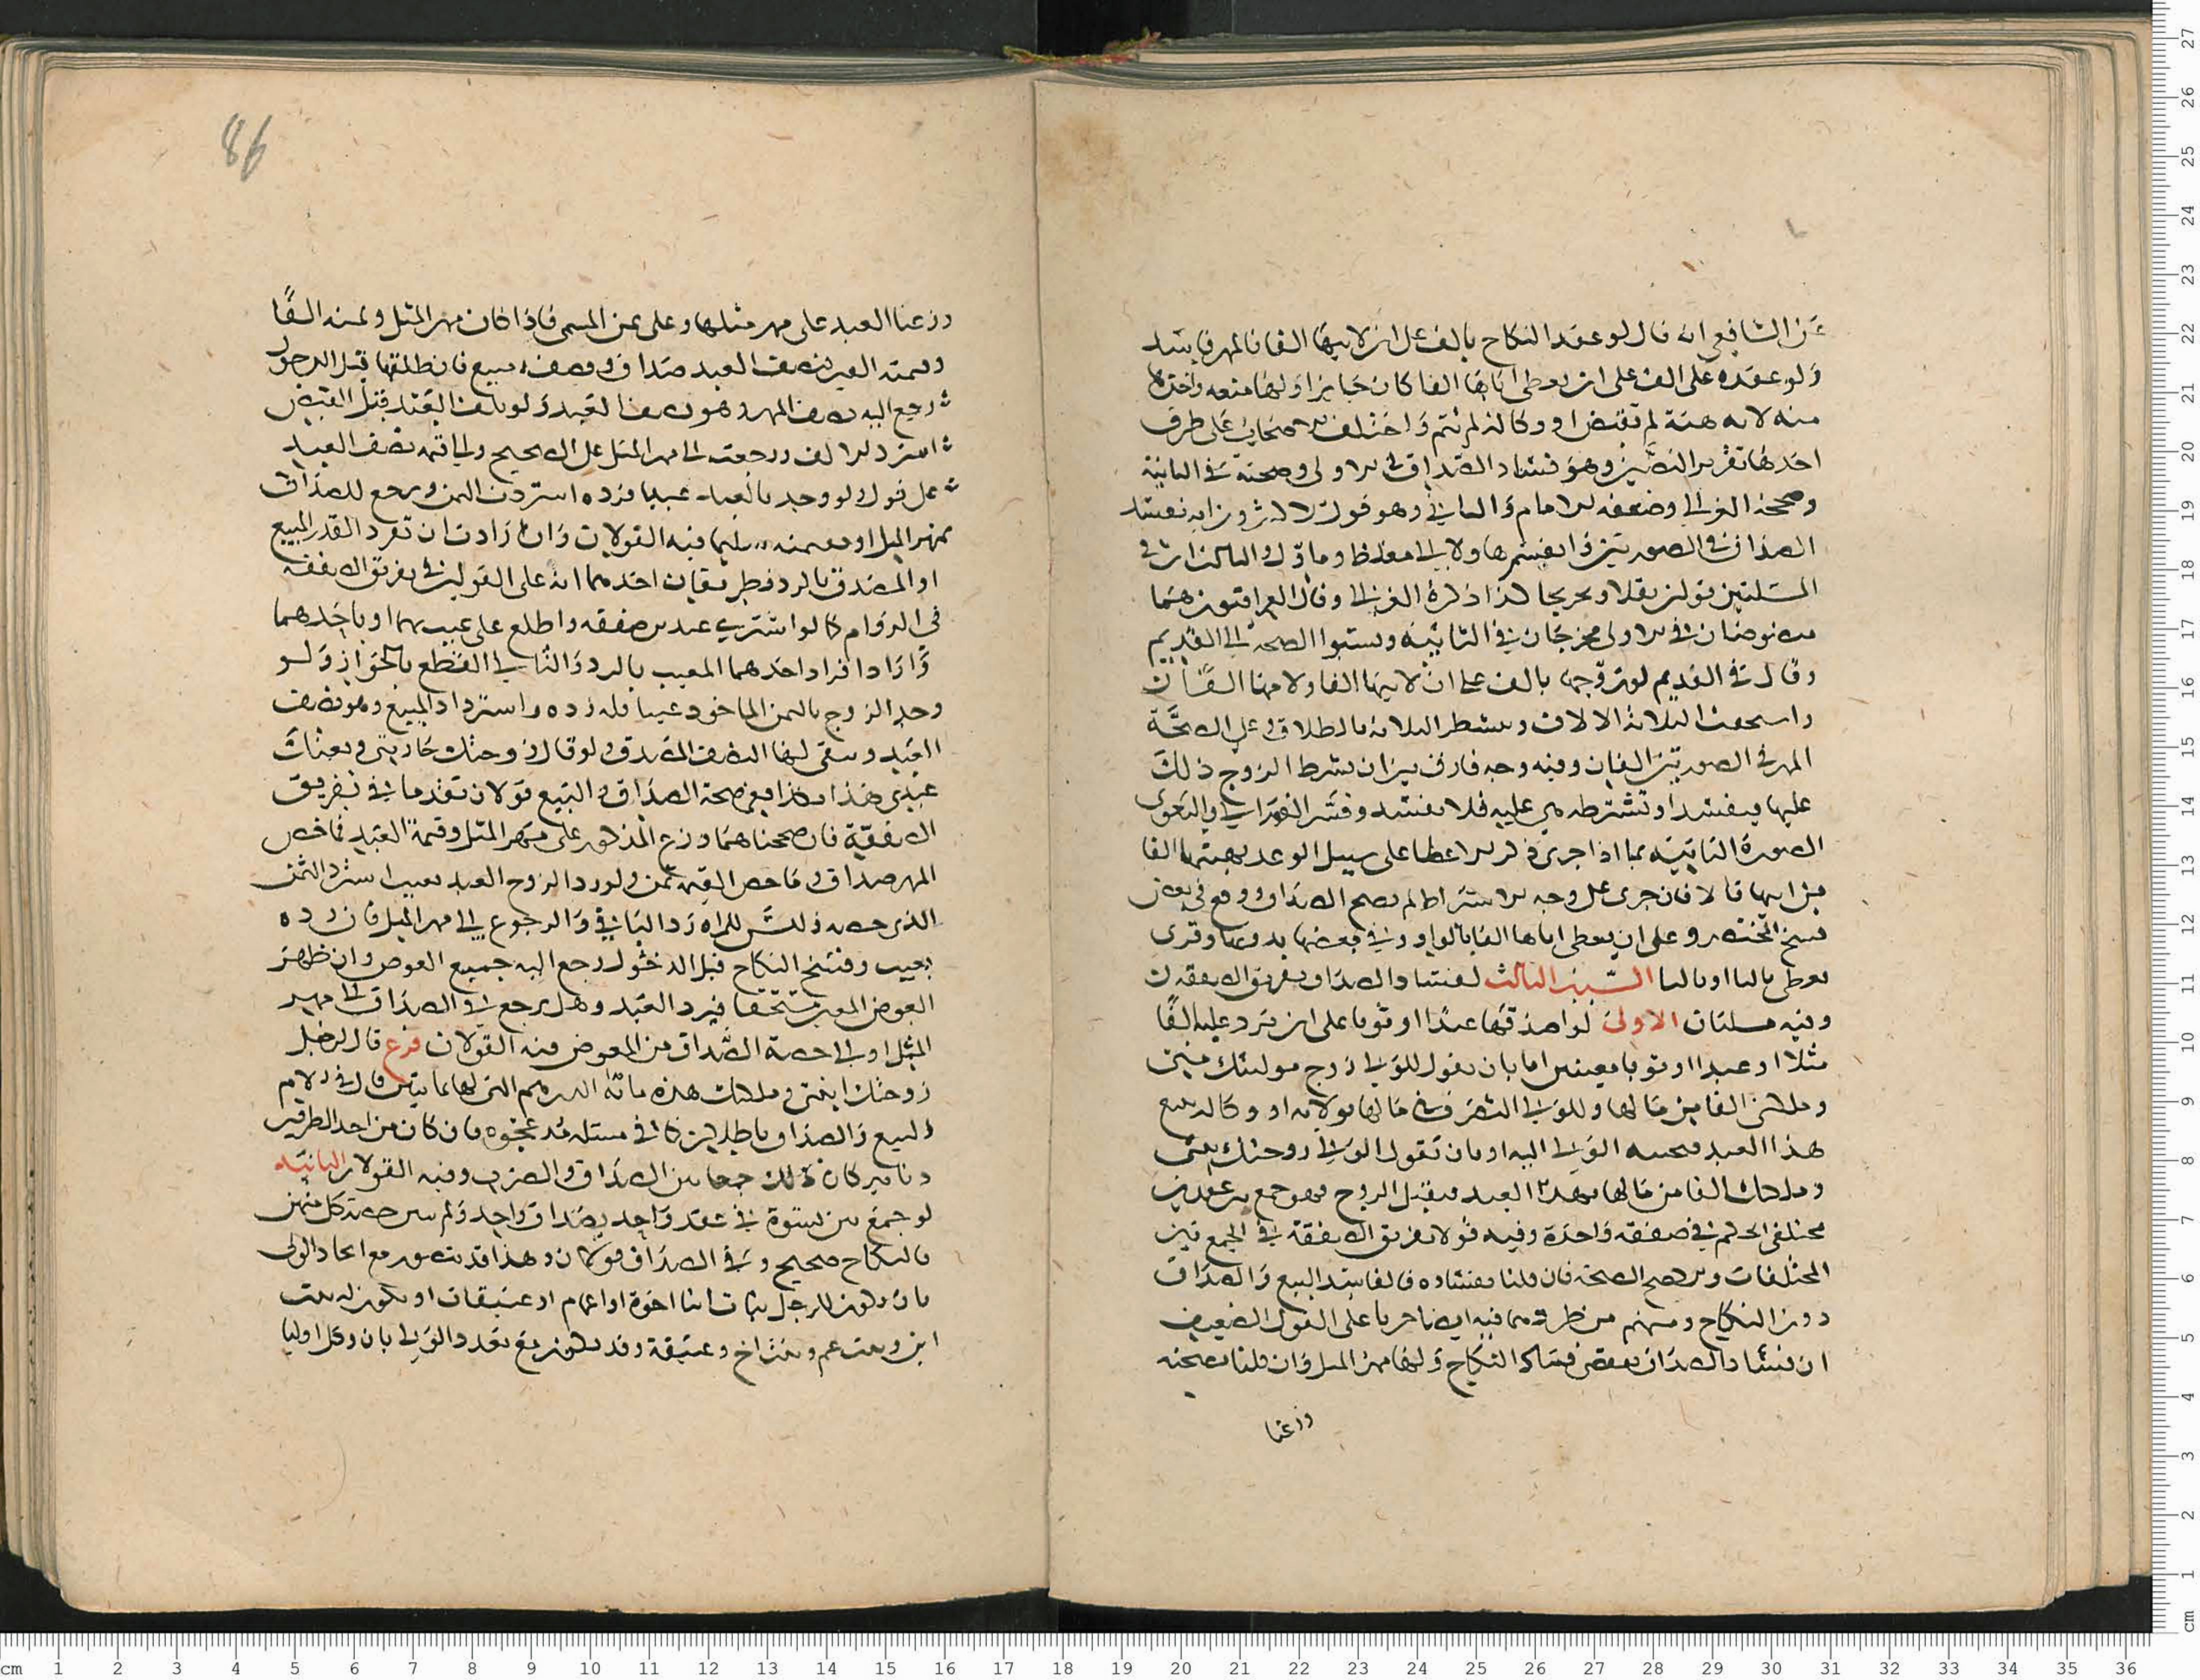 عن الشافعي انه قال لو عقد النكاح بالف على ان لابيها الفا فالمهر فاسد
ولو عقده على الف على ان يعطى اباها الفا كان جايزا ولها منعه واخذها
منه لانه هبة لم تقبض او وكالة لم تتم واختلف الاصحاب على طرق
احدها تقرير النصين وهو فساد الصداق في الاولى وصحته في الثانية
وصححه الغزالي وضعفه الامام و وهو قول الاكثرون انه يفسد
الصداق في الصورتين
المسئلتين قولين نقلا وتخريجا كذا ذكره الغزالي وقال العراقيون هما
منصوصان في الاولى مخرجان في الثانية ونسبوا الصحة الي القديم
وقال في القديم لو تزوجها بالف على ان لابيها الفا ولامها الفا
واستحقت الثلاثة الالاف وتشطر الثلاثة بالطلاق وعلى الصحة
المهر في الصورتين الفان وفيه وجه فارق بين ان يشرط الزوج ذلك
عليها فيفسد او تشترطه هي عليه فلا يفسد وفسر الغزالي والبغوي
الصورة الثانية بما اذا جرى ذكر الاعطا على سبيل الوعد بهبتها الفا
من ابيها قالا فان جرى على وجه الاشتراط لم يصح الصداق ووقع في بعض
نسخ المختصر وعلى ان يعطى اباها الفا بالواو وفي بعضها بدونها وقرى
يعطى باليا او بالتا السبب الثالث لفساد الصداق تفريق الصفقة
وفيه مسلتان الاولى لو اصدقها عبدا او ثوبا على ان ترد عليه الفا
مثلا او عبدا او ثوبا معينين اما بان يقول للولي زوج موليتك مني
وملكني الفا من مالها وللولي التصرف في مالها بولاية او وكالة ببيع
هذا العبد فيجيبه الولي اليه او بان يقول الولي زوجتك بنتي
وملكتك الفا من مالها بهذا العبد فيقبل الزوج فهو جمع بين عقدين
مختلفي الحكم في صفقة واحدة وفيه قولا تفريق الصفقة في الجمع بين
المختلفات والاصح الصحة فان قلنا بفساده فالفاسد البيع والصداق
دون النكاح ومنهم من طرد فيه ايضا جريا على القول الضعيف
ان فساد الصداق يقتضي فساد النكاح ولها مهر المثل وان قلنا بصحته
وزعنا
86
وزعنا العبد على مهر مثلها وعلى ثمن المسمى فاذا كان مهر المثل وثمنه الفا
وقيمته الفين نصف العبد صداق ونصفه مبيع فان طلقها قبل الدخول
رجع اليه نصف المهر وهو العبد ولو تلف العبد قبل القبض
استرد الالف ورجعت الى مهر المثل على الصحيح والى قيمة نصف العبد
على قول ولو وجد بالعبد عيبا فرده استردت الثمن ورجع للصداق
بمهر المثل او بقيمته فيه القولان وان ارادت ان تفرد القدر المبيع
او المصدق بالرد فطريقان احدهما انه على القولين في تفريق الصفقة
في الدوام كما لو اشترى عبدين صفقة واطلع على عيب بهما او باحدهما
وارادا فراد احدهما المعيب بالرد والثاني القطع بالجواز ولو
وجد الزوج بالثمن الماخوذ عيبا فله رده واسترداد المبيع وهو نصف
العبد ويبقى لها النصف المصدق ولو قال زوجتك جاريتي وبعتك
عبدي هذا بكذا ففي صحة الصداق والبيع قولان تقدما في تفريق
الصفقة فان صححناهما وزع المذكور على مهر المثل وقيمة العبد فما خص
المهر صداق وما خص القيمة ثمن ولو رد الزوج العبد بعيب استرد الثمن
الذي خصه وليس للمراة رد الباقي والرجوع الي مهر المثل فان رده
بعيب وفسخ النكاح قبل الدخول رجع اليه جميع العوض وان ظهر
العوض المعين مستحقا فيرد العبد وهل يرجع في الصداق الى مهر
المثل او الى حصة الصداق من العوض فيه القولان فرع قال لرجل
زوجتك ابنتي وملكتك هذه ماية الدرهم التي لها بمايتين قال في الام
البيع والصداق باطلين كما في مسئلة مد عجوة فان كان من احد الطرفين
دنانير كان ذلك جمعا بين الصداق والصرف وفيه القولان الثانية
لو جمع بين نسوة في عقد واحد بصداق واحد ولم يبين حصة كل منهن
فالنكاح صحيح وفي الصداق قولان وهذا قد يتصور مع اتحاد الولي
بان يكون للرجل بنات ابنا اخوة او اعمام او عتيقات او يكون له بنت
ابن وبنت عم وبنت اخ وعتيقة وقد يكون مع تعدد الولي بان وكل اوليا